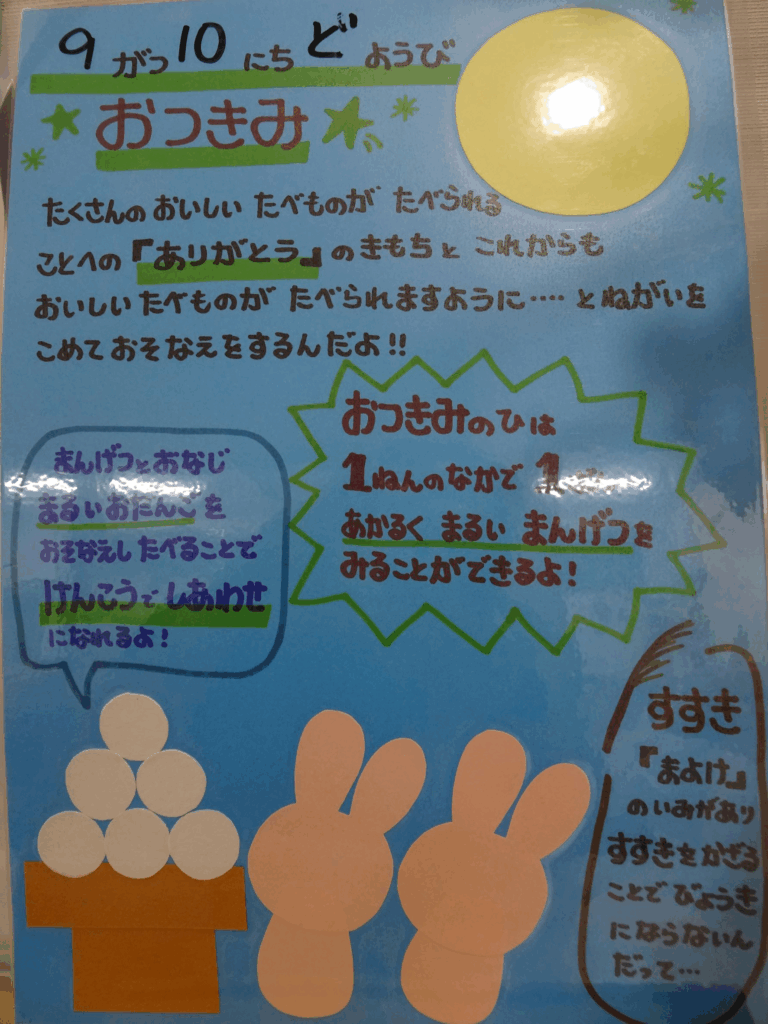 9がつ10にちどようび
おつきみ
たくさんの おいしい たべものが たべられる
ことへの『ありがとう』のきもちと これからも
おいしいたべものが たべられますように‥‥とねがいを
こめておそなえをするんだよ!!
おつきみのひは
1ねんのなかで 1
あかるく まるい まんげつを
みることができるよ!
まんげつとおなじ
まるいおだんごを
おそなえしたべることで
けんこうでしあわせ
になれるよ!
すすき
『まよけ』
のいみがあり
すすきをかざる
ことでびょうき
にならないん
だって…